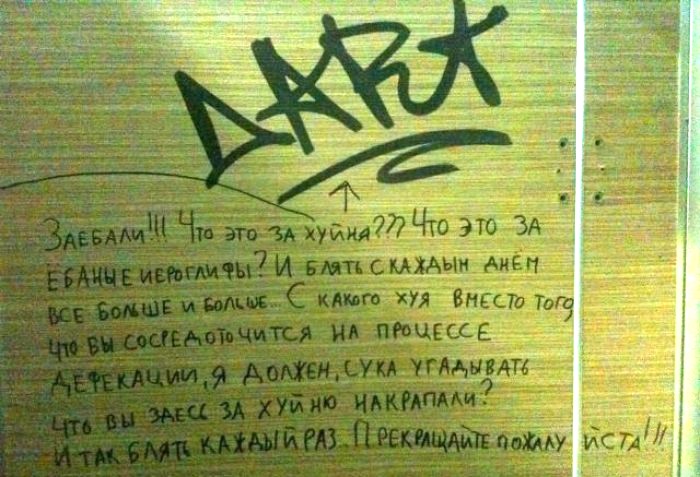 DART
ЗАЕБАЛИ!!! ЧТО ЭТО ЗА ХУЙНЯ??? ЧТО ЭТО ЗА
ЕБАНЫЕ ИЕРОГЛИФЫ? И БЛЯТЬ С КАЖДЫМ ДНЁМ
ВСЕ БОЛЬШЕ И БОЛЬШЕ... С КАКОГО ХУЯ ВМЕСТО ТОГО
ЧТО ВЫ СОСРЕДОТОЧИТСЯ НА ПРОЦЕССЕ
ДЕФЕКАЦИИ, Я ДОЛЖЕН, СУКА УГАДЫВАТЬ
ЧТО ВЫ ЗДЕСС ЗА ХУЙНЮ НАКРАПАЛИ?
И ТАК БЛЯТЬ КАЖДЫЙ РАЗ. ПРЕКРАЩАЙТЕ ПОЖАЛУЙСТА!!!